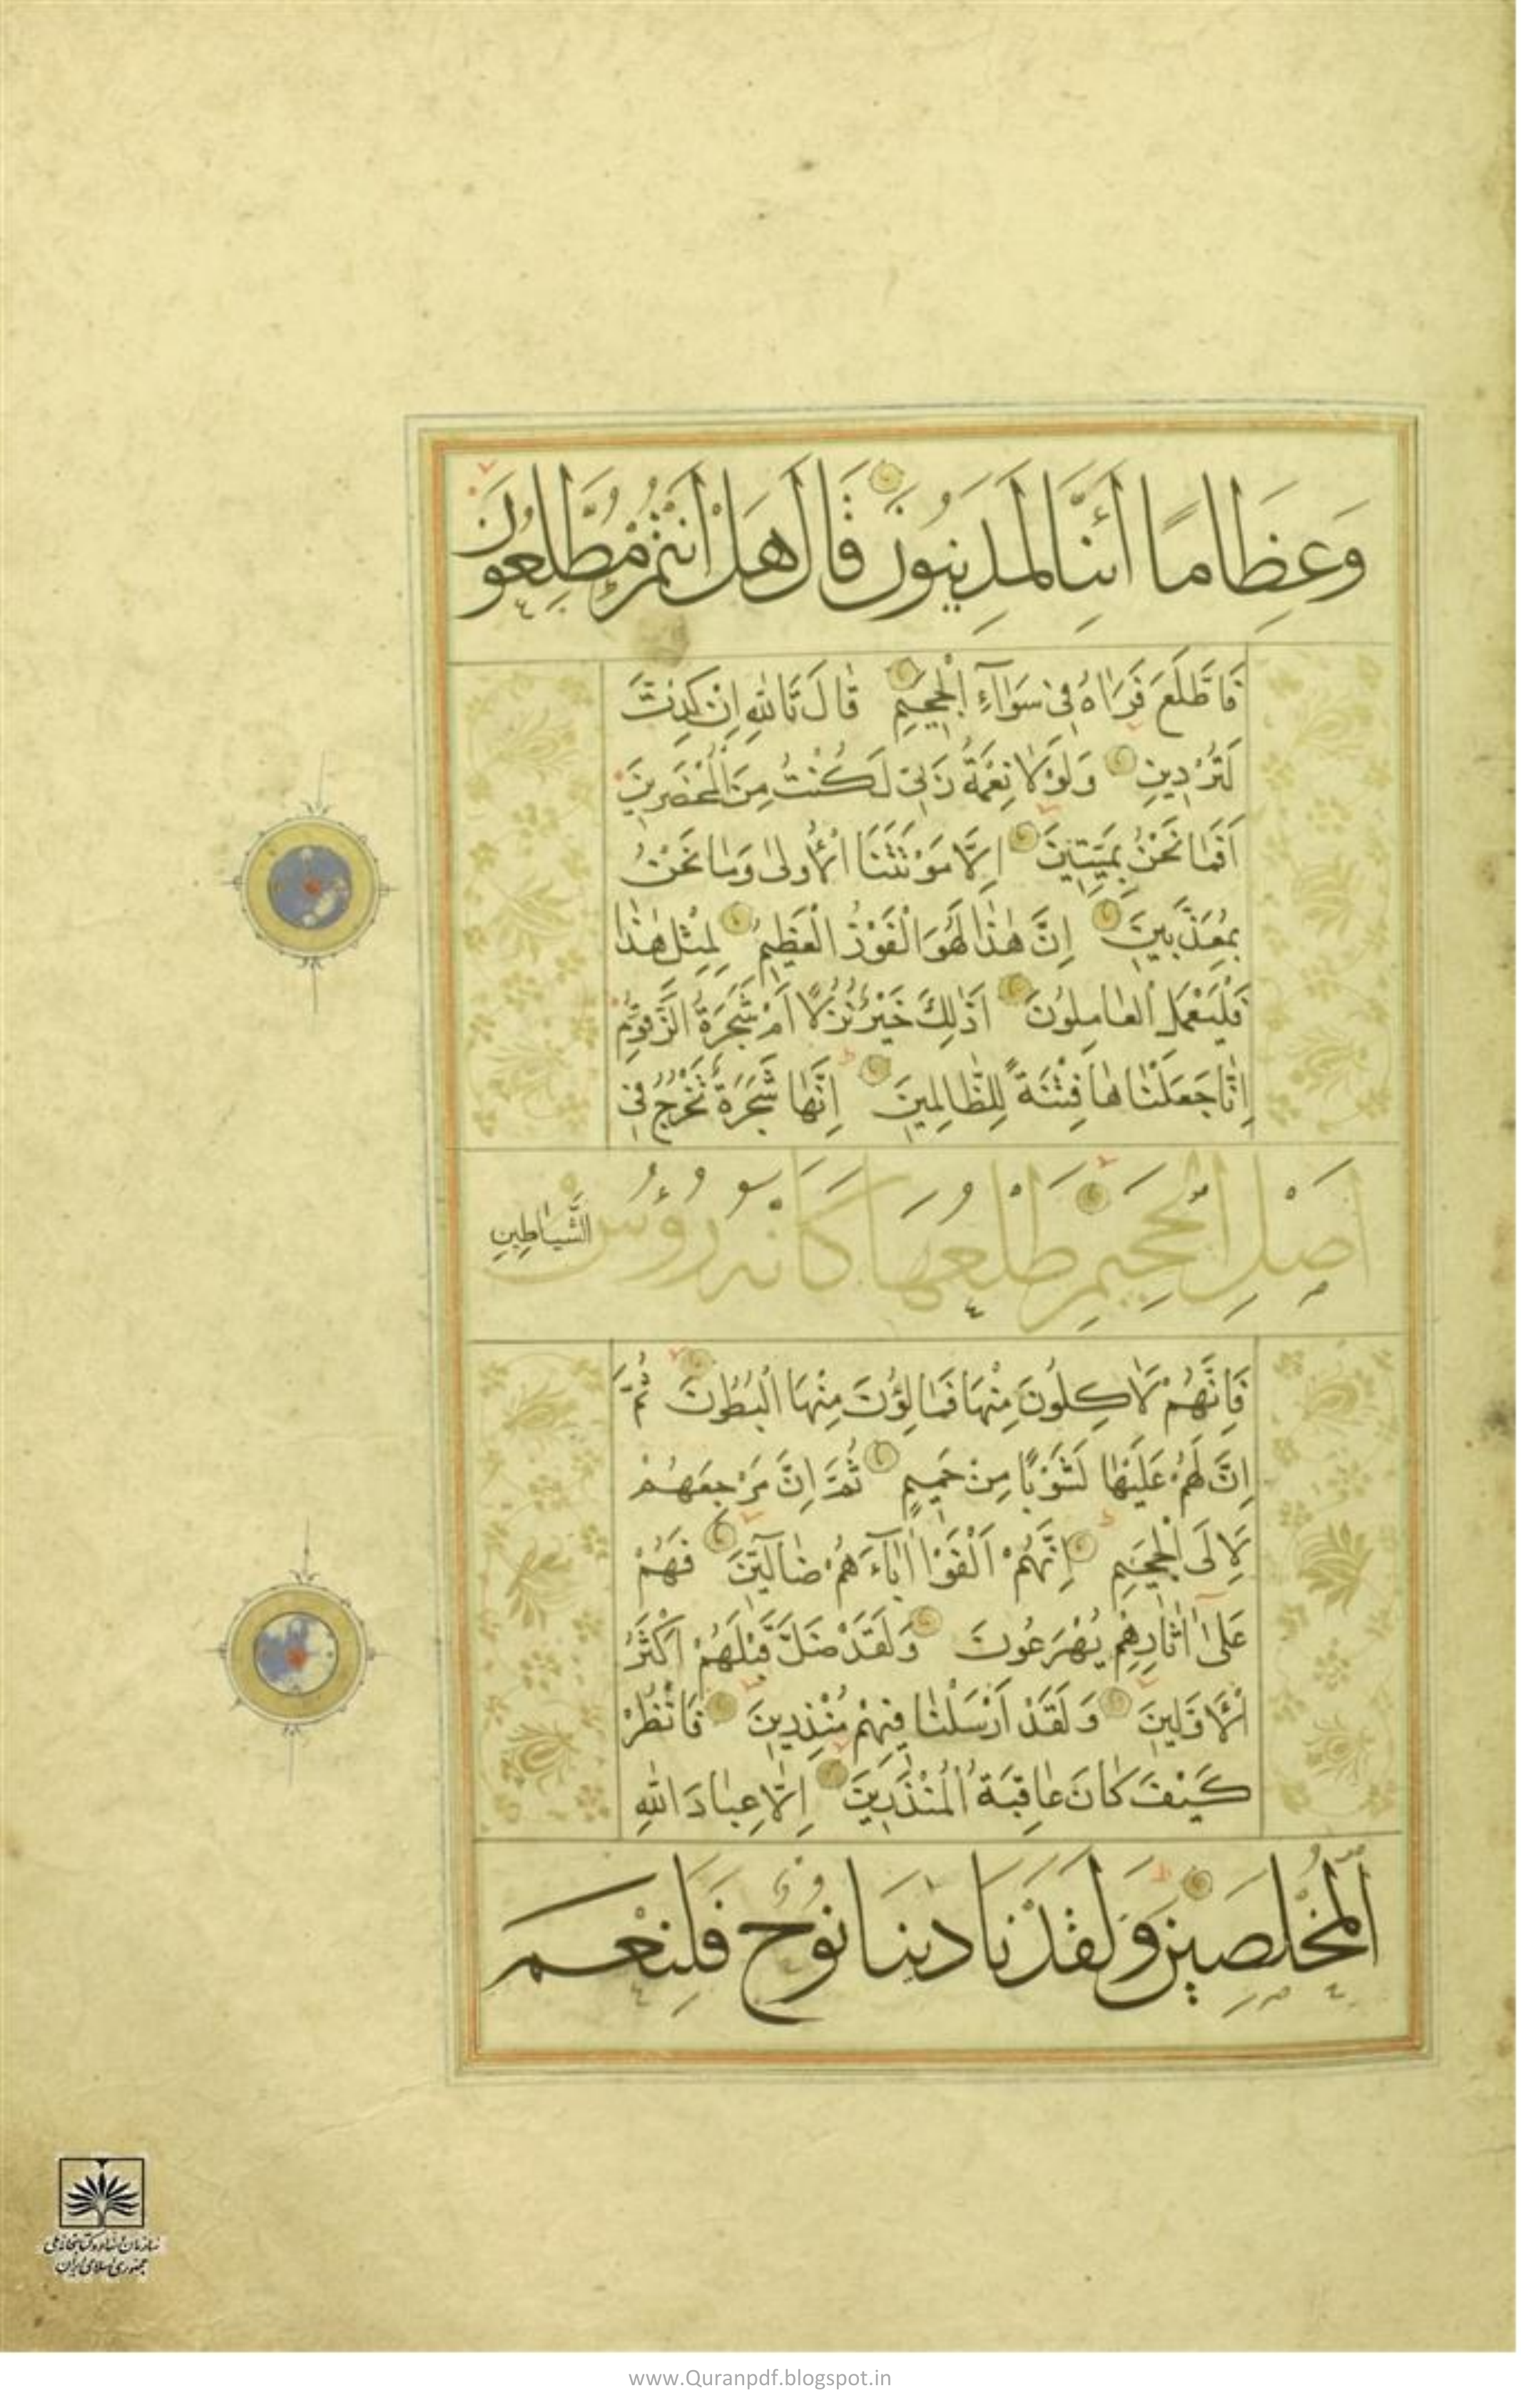 وَعِظَامًا أَئِنَّا لَمَدِينُونَ قَالَ هَلْ أَنْتُمْ مُطَّلِعُونَ
فَاطَّلَعَ فَرَاٰهُ فِى سَوَاۤءِ الْجَحِيمِ قَالَ تَاللّٰهِ اِنْ كِدْتَ
لَتُرْدِينِ وَلَوْلَا نِعْمَةُ رَبِّى لَكُنْتُ مِنَ الْمُحْضَرِينَ
اَفَمَا نَحْنُ بِمَيِّتِينَ اِلَّا مَوْتَتَنَا الْأُولٰى وَمَا نَحْنُ
بِمُعَذَّبِينَ اِنَّ هٰذَا لَهُوَ الْفَوْزُ الْعَظِيمُ لِمِثْلِ هٰذَا
فَلْيَعْمَلِ الْعَامِلُونَ اَذٰلِكَ خَيْرٌ نُزُلًا اَمْ شَجَرَةُ الزَّقُّومِ
اِنَّا جَعَلْنَاهَا فِتْنَةً لِلظَّالِمِينَ اِنَّهَا شَجَرَةٌ تَخْرُجُ فِى
اَصْلِ الْجَحِيمِ طَلْعُهَا كَاَنَّهُ رُؤُسُ الشَّيَاطِينِ
فَاِنَّهُمْ لَاٰكِلُونَ مِنْهَا فَمَالِؤُنَ مِنْهَا الْبُطُونَ ثُمَّ
اِنَّ لَهُمْ عَلَيْهَا لَشَوْبًا مِنْ حَمِيمٍ ثُمَّ اِنَّ مَرْجِعَهُمْ
لَاِلَى الْجَحِيمِ اِنَّهُمْ اَلْفَوْا اٰبَاۤءَهُمْ ضَاۤلِّينَ فَهُمْ
عَلٰى اٰثَارِهِمْ يُهْرَعُونَ وَلَقَدْ ضَلَّ قَبْلَهُمْ اَكْثَرُ
الْاَوَّلِينَ وَلَقَدْ اَرْسَلْنَا فِيهِمْ مُنْذِرِينَ فَانْظُرْ
كَيْفَ كَانَ عَاقِبَةُ الْمُنْذَرِينَ اِلَّا عِبَادَ اللّٰهِ
الْمُخْلَصِينَ وَلَقَدْ نَادٰينَا نُوحٌ فَلَنِعْمَ
سازمان اسناد و کتابخانه ملی
جمهوری اسلامی ایران
www.Quranpdf.blogspot.in